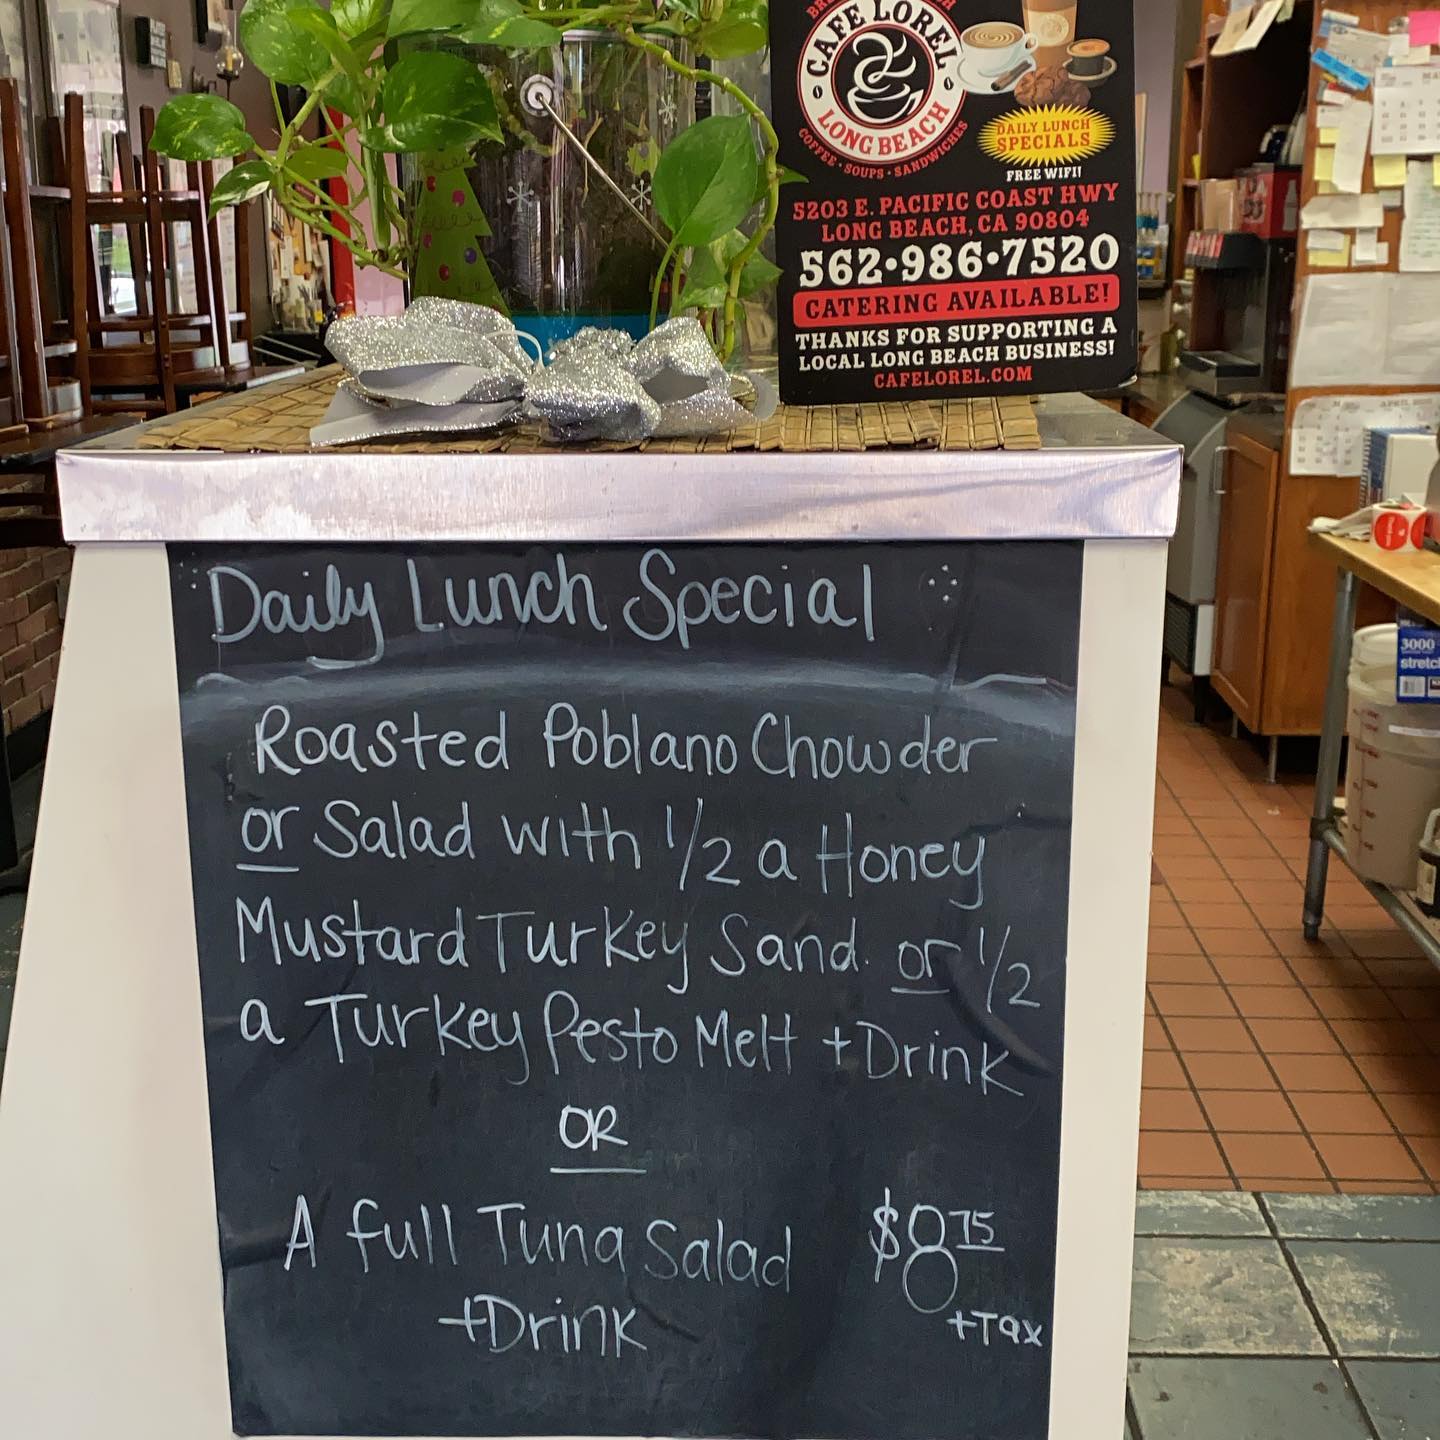 CAFE LOREL
LONG BEACH
COFFEE • SOUPS • SANDWICHES
DAILY LUNCH
SPECIALS
FREE WIFI!
5203 E. PACIFIC COAST HWY
LONG BEACH, CA 90804
562•986•7520
CATERING AVAILABLE!
THANKS FOR SUPPORTING A
LOCAL LONG BEACH BUSINESS!
CAFELOREL.COM
Daily Lunch Special
Roasted Poblano Chowder
or Salad with 1/2 a Honey
Mustard Turkey Sand. or 1/2
a Turkey Pesto Melt +Drink
OR
A full Tuna Salad $8 75
+Drink +Tax
3000
stretch